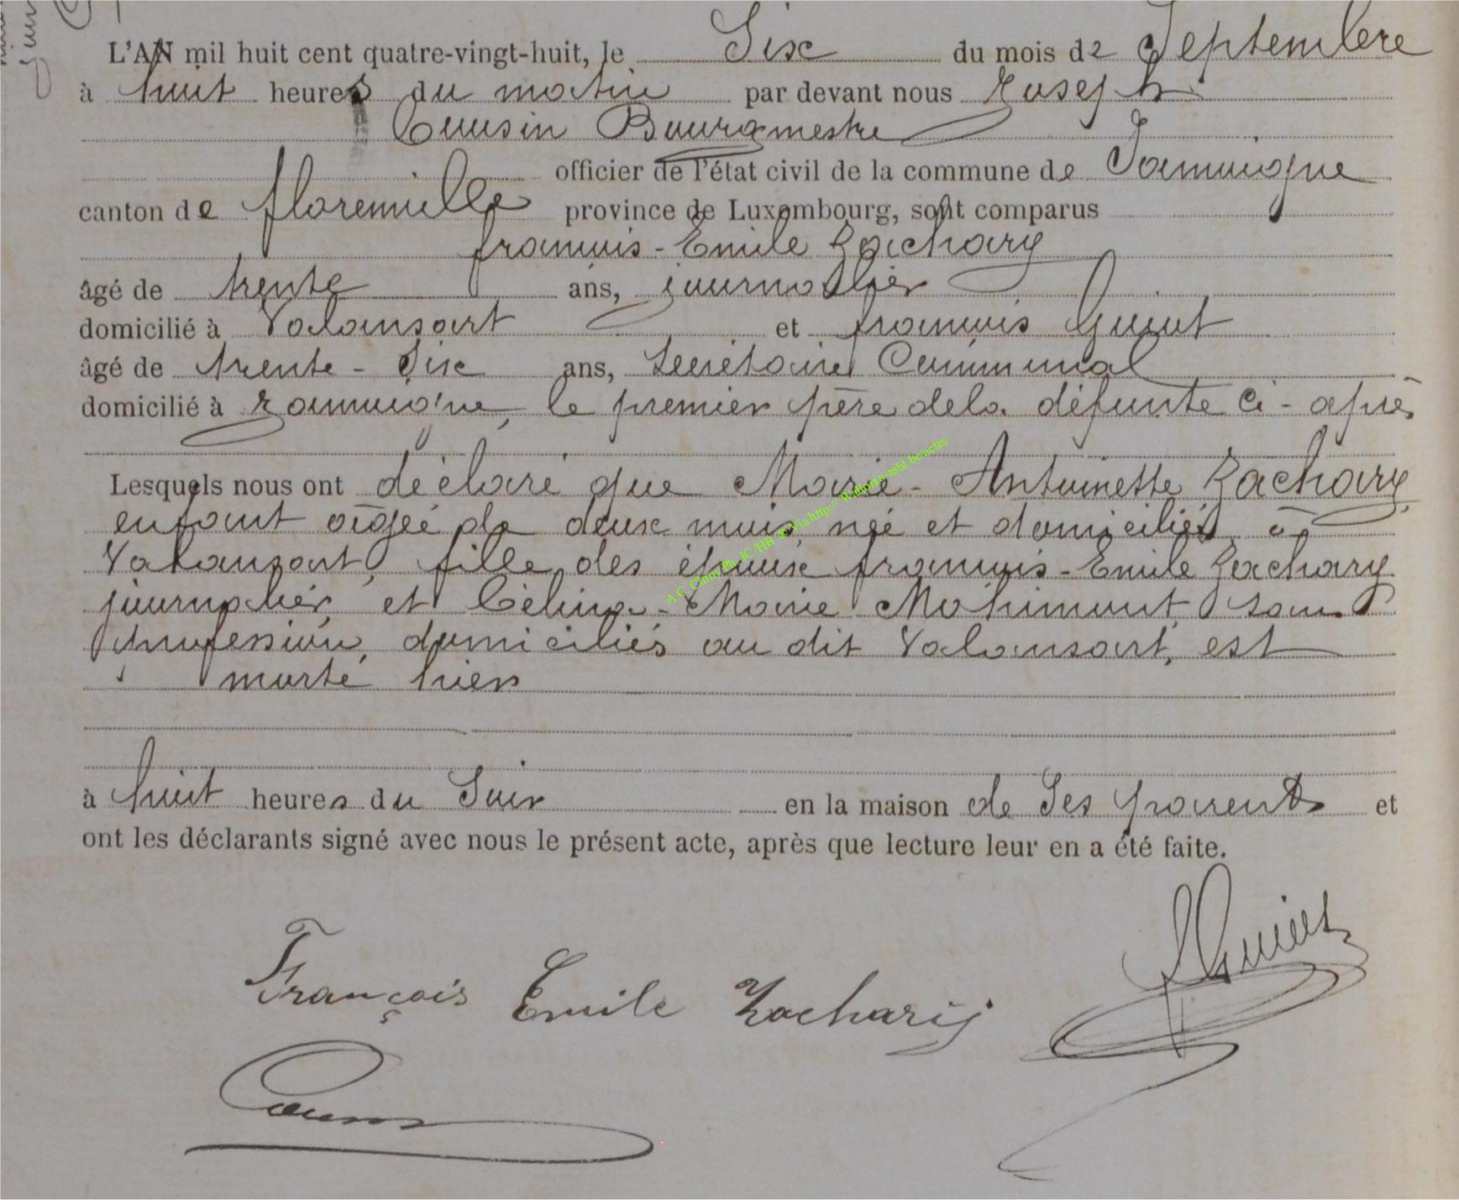 L'AN mil huit cent quatre-vingt-huit, le Six du mois de Septembre
à huit heures du matin par devant nous Joseph
Cousin Bourgmestre
officier de l'état civil de la commune de Jamoigne
canton de florenville province de Luxembourg, sont comparus
françois-Emile Zachary
âgé de trente ans, journalier
domicilié à Valansart et françois Guiot
âgé de trente-Six ans, Secrétaire Communal
domicilié à Jamoigne, le premier père de la défunte ci-après
Lesquels nous ont déclaré que Marie-Antoinette Zachary,
enfant âgée de deux mois, née et domiciliée à
Valansart, fille des époux françois-Emile Zachary
journalier et Célina-Marie Mohimont, sans
profession, domiciliés au dit Valansart, est
morte hier
à huit heures du Soir en la maison de Ses parents et
ont les déclarants signé avec nous le présent acte, après que lecture leur en a été faite.
François Emile Zacharij
Guiot
Cousin